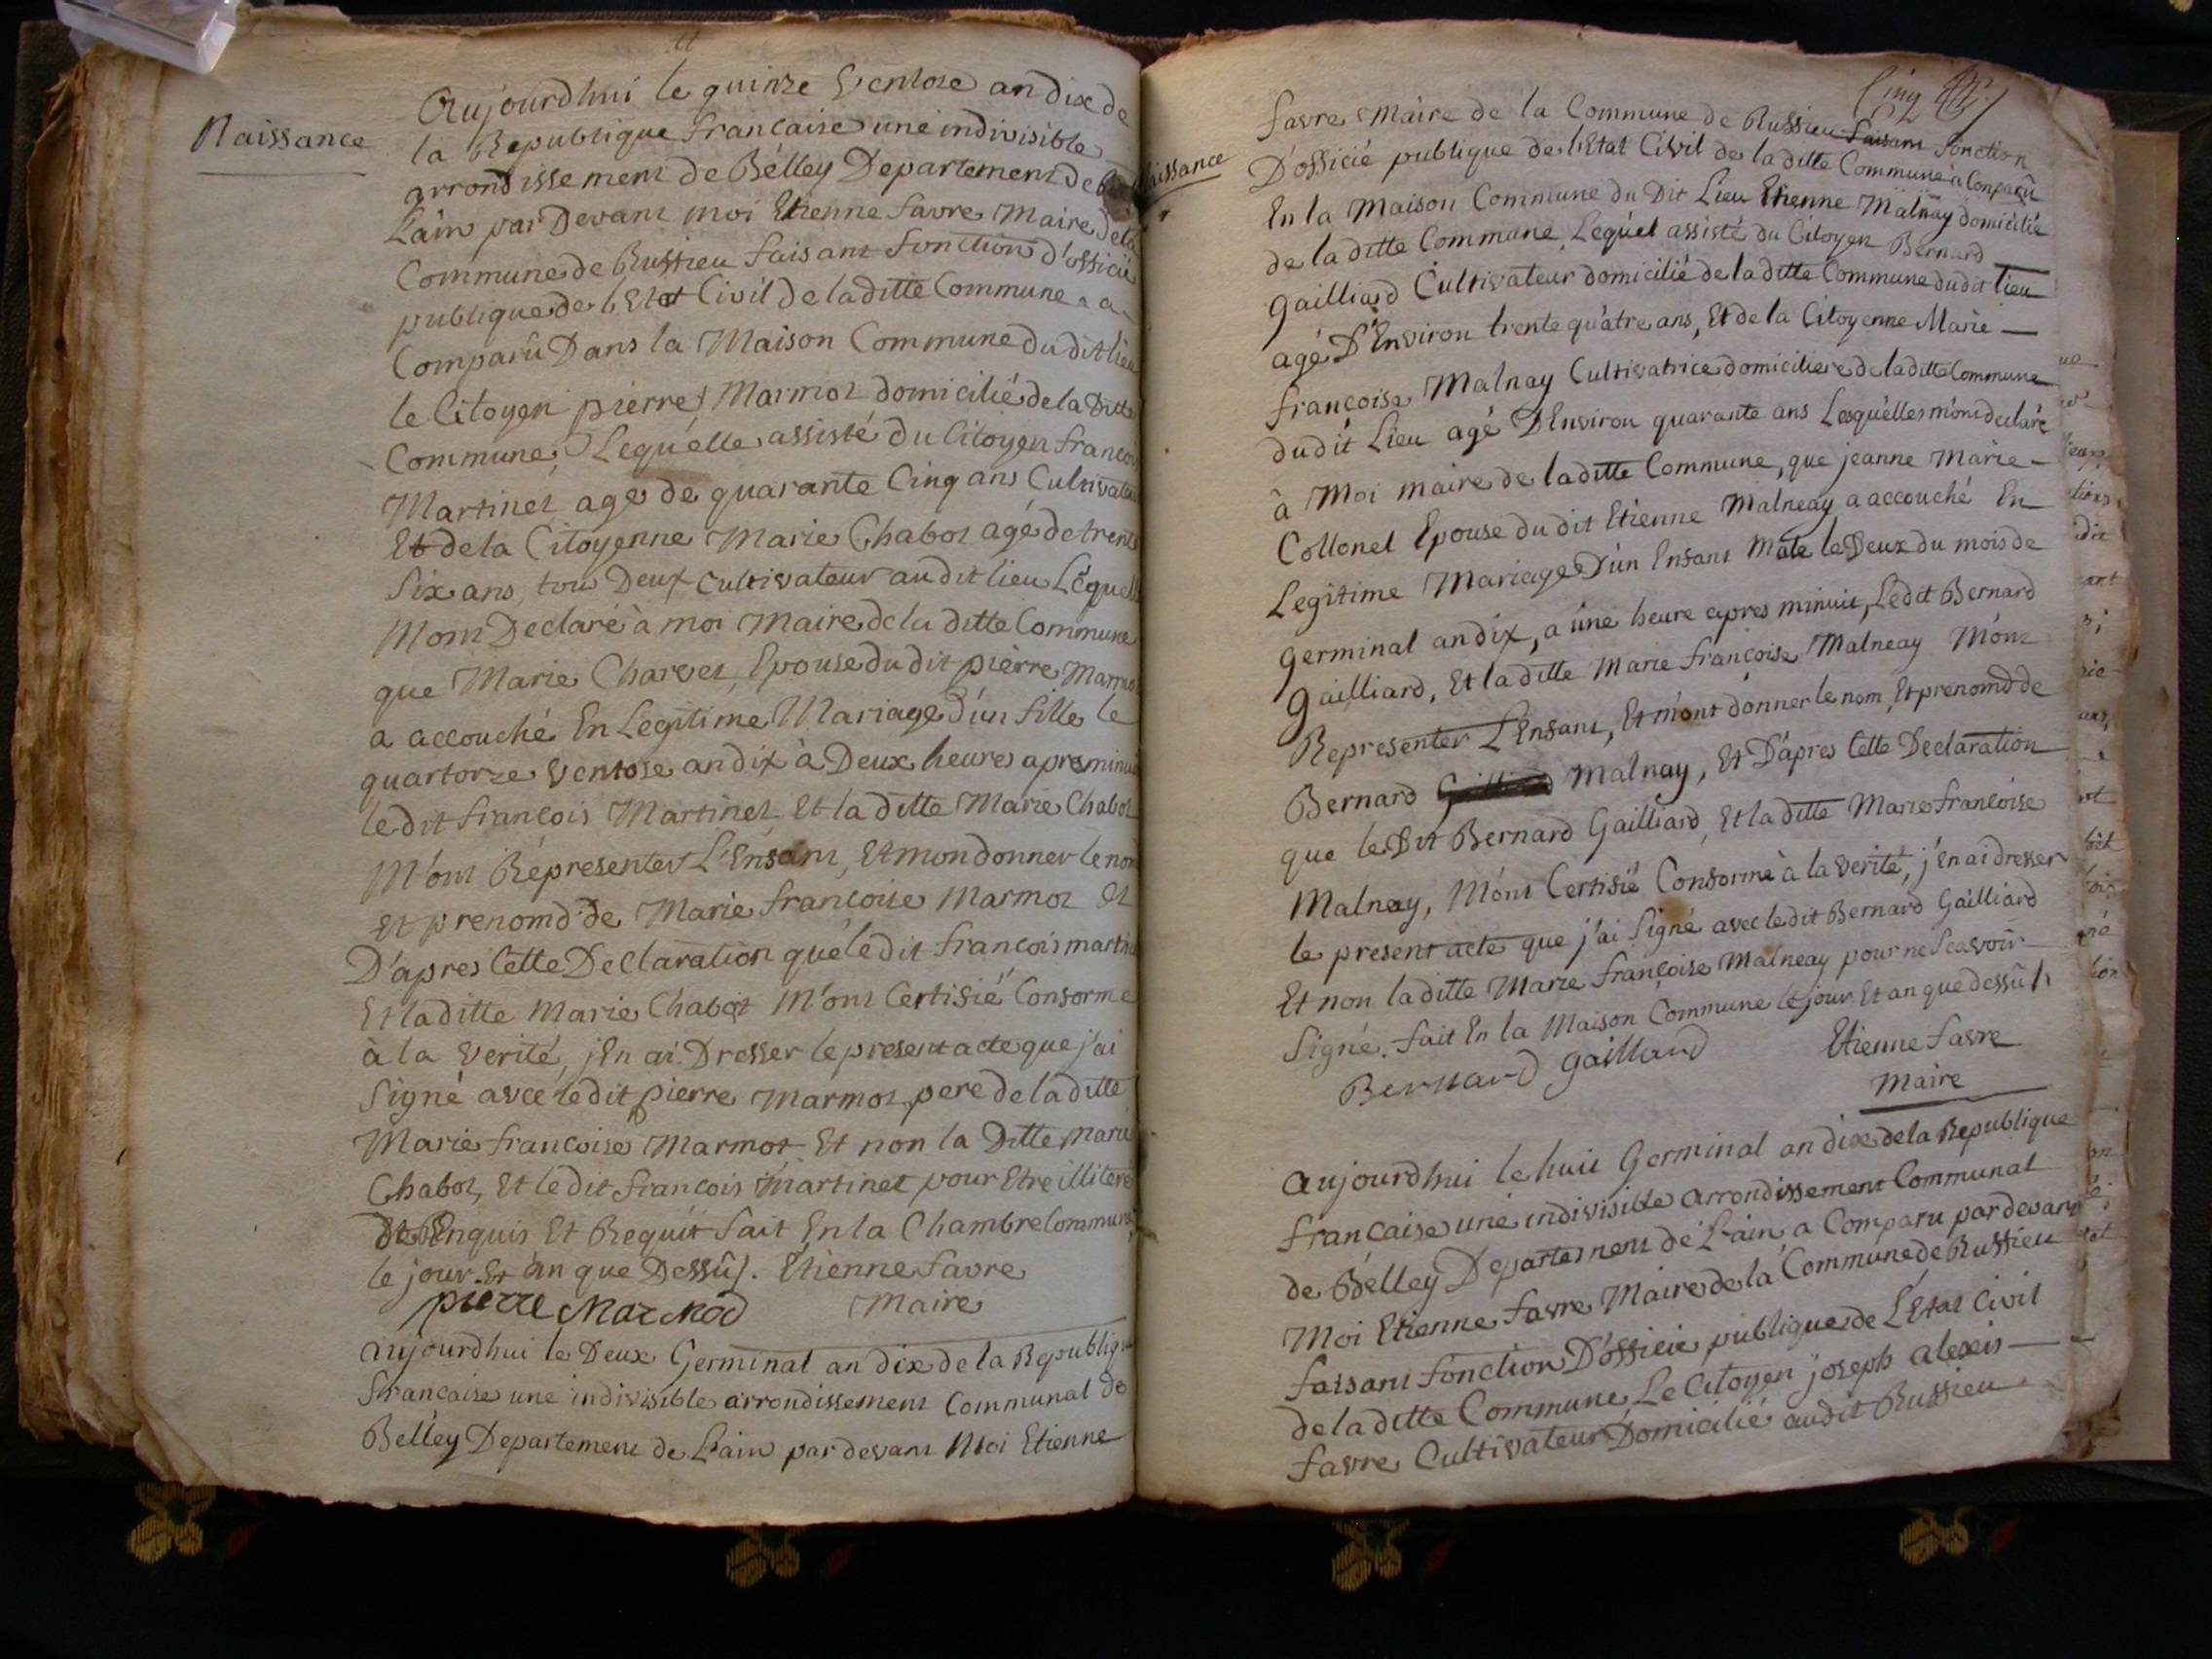 Naissance
Aujourdhui le quinze Ventose an dix de
la Republique francaise une indivisible
arrondissement de Bélley Departement de
L'ain par Devant moi Etienne favre Maire de la
Commune de Russieu faisant fonction d'officié
publique de l'Etat Civil de laditte Commune a
Comparû Dans la Maison Commune du dit lieu
le Citoyen pierre Marmot domicilié de la Ditte
Commune, Lequélle assisté du Citoyen francois
Martinet age de quarante Cinq ans Cultivateur
Et de la Citoyenne Marie Chabot agé de trente
Six ans, tou Deux Cultivateur au dit lieu Léquelle
M'ont Declaré à moi Maire de la ditte Commune
que Marie Charvet, Epouse du dit pièrre Marmot
a accouché En Legitime Mariage d'un fille le
quartorze Ventose an dix à Deux heures apres minuit
le dit francois Martinet Et la ditte Marie Chabot
M'ont Répresenter L'Enfant, Et mon donner le nom
Et prenomd de Marie francoise Marmot Et
D'apres Cette Declaration qué lé dit francois martinet
Et la ditte Marie Chabot M'ont Certifié Conforme
à la Verité, j'En ai Dresser le present acte que j'ai
Signé avec le dit pierre Marmot pere de la ditte
Marie francoise Marmot Et non la Ditte Marie
Chabot, Et le dit francois Martinet pour Etre illiteré
De Enquis Et Requit fait En la Chambre Commune
le jour Et an que Dessûs. Etienne favre
pierre Marmod Maire
aujourdhui le Deux Germinal an dix de la Republique
francaise une indivisible arrondissement Communal de
Bélley Departement de L'ain par devant Moi Etienne
Cinq
favre Maire de la Commune de Russieu faisant fonction
D'officié publique de l'Etat Civil de la ditte Commune a Comparû
En la Maison Commune du Dit Lieu Etienne Malnay domicilié
de la ditte Commune, Léquel assisté du Citoyen Bernard
gailliard Cultivateur domicilié de la ditte Commune du dit lieu
agé D'Environ trente quàtre ans, Et de la Citoyenne Marie
francoise Malnay Cultivatrice domiciliere de la ditte Commune
du dit Lieu agé D'Environ quarante ans Lesquélles m'ont declaré
à Moi maire de la ditte Commune, que jeanne Marie
Collonel Epouse du dit Etienne Malneay a accouché En
Legitime Mariage D'un Enfant Male le Deux du mois de
germinal an dix, a une heure apres minuit, Le dit Bernard
gailliard, Et la ditte Marie francoise Malneay M'ont
Representer L'Enfant, Et m'ont donner le nom, Et prenomd de
Bernard Malnay, Et D'apres Cette Declaration
que le Dit Bernard Gailliard, Et la ditte Marie francoise
Malnay, M'ont Certifié Conforme à la Verité, j'En ai dresser
le present acte que j'ai Signé avec le dit Bernard Gailliard
Et non la ditte Marie françoise Malneay pour ne Scavoir
Signé. fait En la Maison Commune le jour Et an que dessûs
Bernard gaillard Etienne favre
Maire
aujourdhui le huit Germinal an dix de la Republique
francaise une indivisible arrondissement Communal
de Bélley Departement de L'ain a Comparu par devant
Moi Etienne favre Maire de la Commune de Russieu
faisant fonction D'officié publique de L'Etat Civil
de la ditte Commune Le Citoyen joseph alexis
favre Cultivateur Domicilié audit Russieu